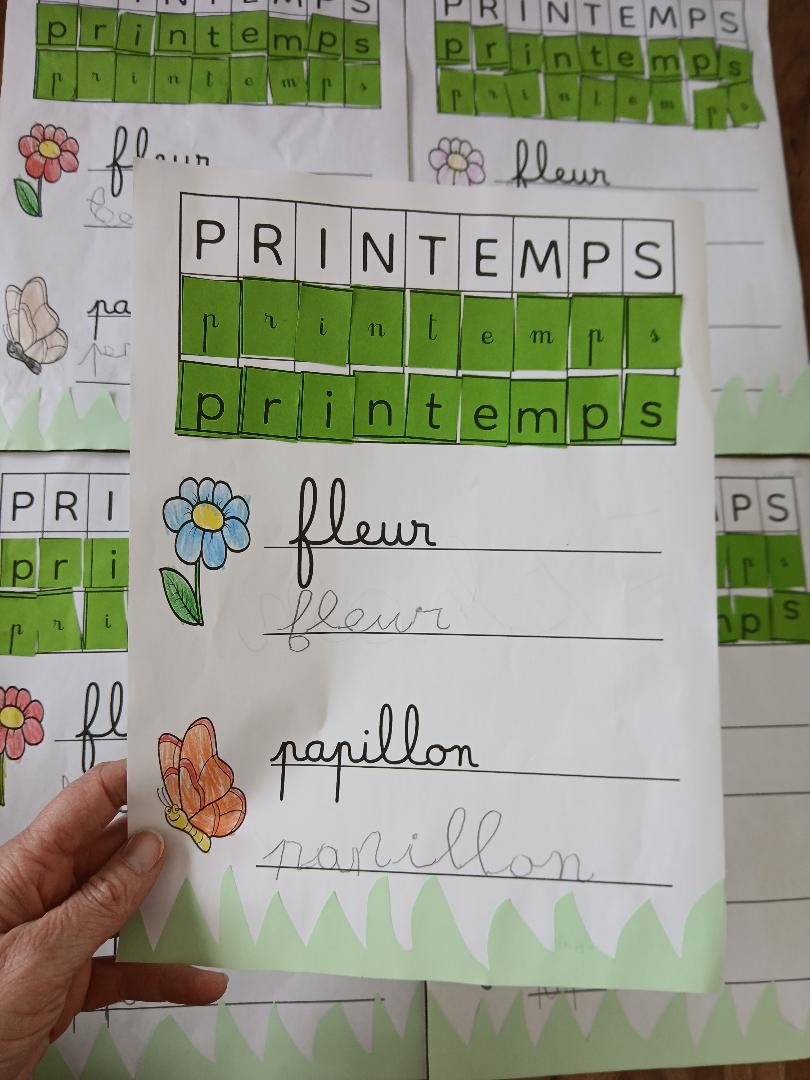 PRINTEMPS
printemps
printemps
PRINTEMPS
printemps
printemps
fleur
fleur
PRINTEMPS
printemps
printemps
fleur
fleur
papillon
papillon
pa
PRI
pri
pri
fl
PS
ps
ps